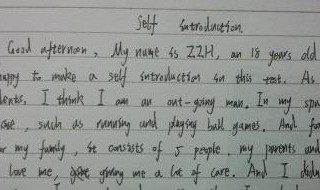 Self introduction.
Good afternoon, My name is ZZH, an 18 years old
happy to make a self introduction in this test. As
dents. I think I am an out-going man. In my spa
such as running and playing ball games. And fo
my family, it consists of 5 people. my parents and
love me, giving me a lot of care. And I